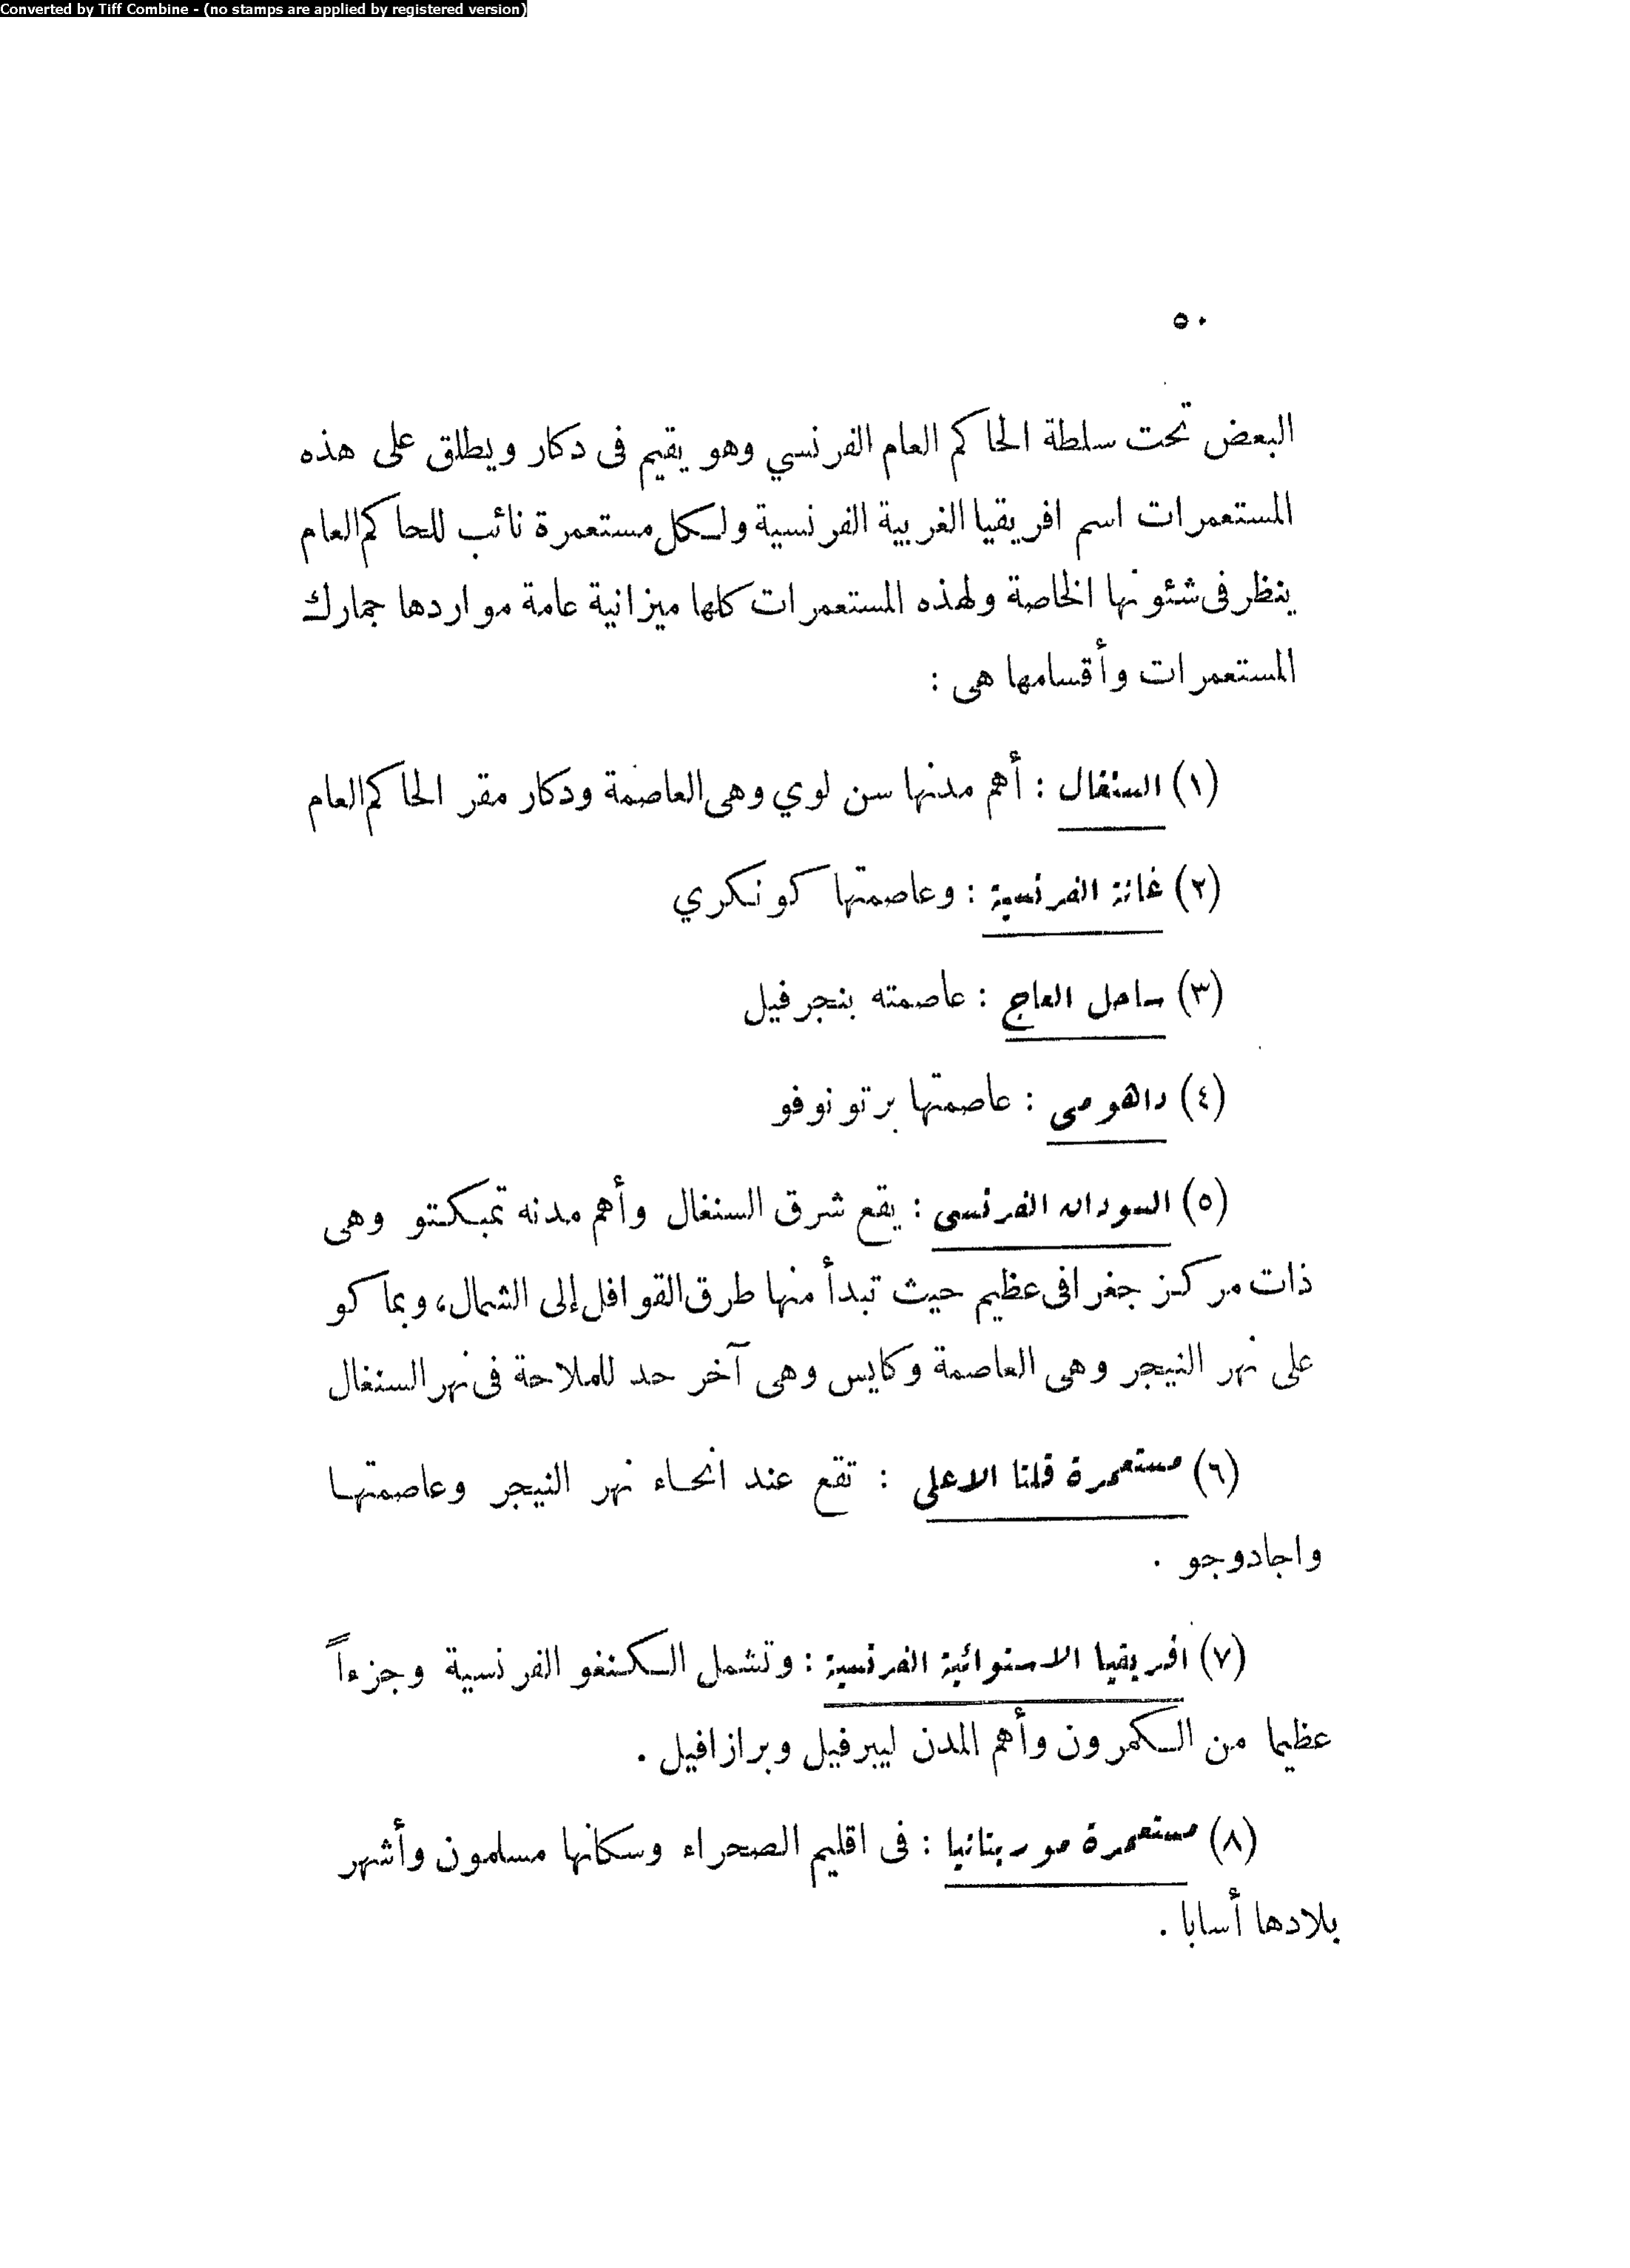 Converted by Tiff Combine - (no stamps are applied by registered version)
٥٠
البعض تحت سلطة الحاكم العام الفرنسي وهو يقيم فى دكار ويطلق على هذه
المستعمرات اسم افريقيا الغربية الفرنسية ولكل مستعمرة نائب للحاكم العام
ينظر فى شئونها الخاصة ولهذه المستعمرات كلها ميزانية عامة مواردها جمارك
المستعمرات وأقسامها هى :
(١) السنغال : أهم مدنها سن لوي وهى العاصمة ودكار مقر الحاكم العام
(٢) غانة الفرنسية : وعاصمتها كونكري
(٣) ساحل العاج : عاصمته بنجرفيل
(٤) داهومى : عاصمتها برتونوفو
(٥) السودان الفرنسى : يقع شرق السنغال وأهم مدنه تمبكتو وهى
ذات مركز جغرافى عظيم حيث تبدأ منها طرق القوافل إلى الشمال، وبماكو
على نهر النيجر وهى العاصمة وكايس وهى آخر حد للملاحة فى نهر السنغال
(٦) مستعمرة فلتا الاعلى : تقع عند انحاء نهر النيجر وعاصمتها
واجادوجو .
(٧) افريقيا الاستوائية الفرنسية : وتشمل الكنغو الفرنسية وجزءاً
عظيما من الكمرون وأهم المدن ليبرفيل وبرازافيل .
(٨) مستعمرة موريتانيا : فى اقليم الصحراء وسكانها مسلمون وأشهر
بلادها أسابا .